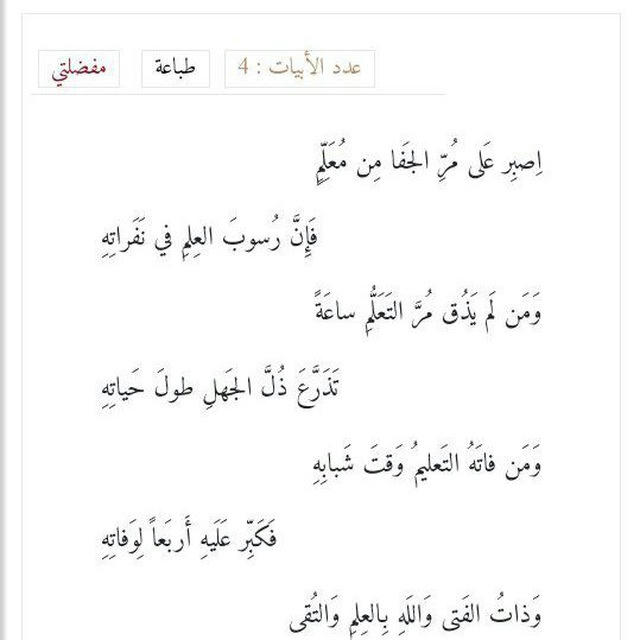 عدد الأبيات : 4 طباعة مفضلتي
اِصبِر عَلى مُرِّ الجَفا مِن مُعَلِّمٍ
فَإِنَّ رُسوبَ العِلمِ في نَفَراتِهِ
وَمَن لَم يَذُق مُرَّ التَعَلُّمِ ساعَةً
تَذَرَّعَ ذُلَّ الجَهلِ طولَ حَياتِهِ
وَمَن فاتَهُ التَعليمُ وَقتَ شَبابِهِ
فَكَبِّر عَلَيهِ أَربَعاً لِوَفاتِهِ
وَذاتُ الفَتى وَاللَهِ بِالعِلمِ وَالتُقى